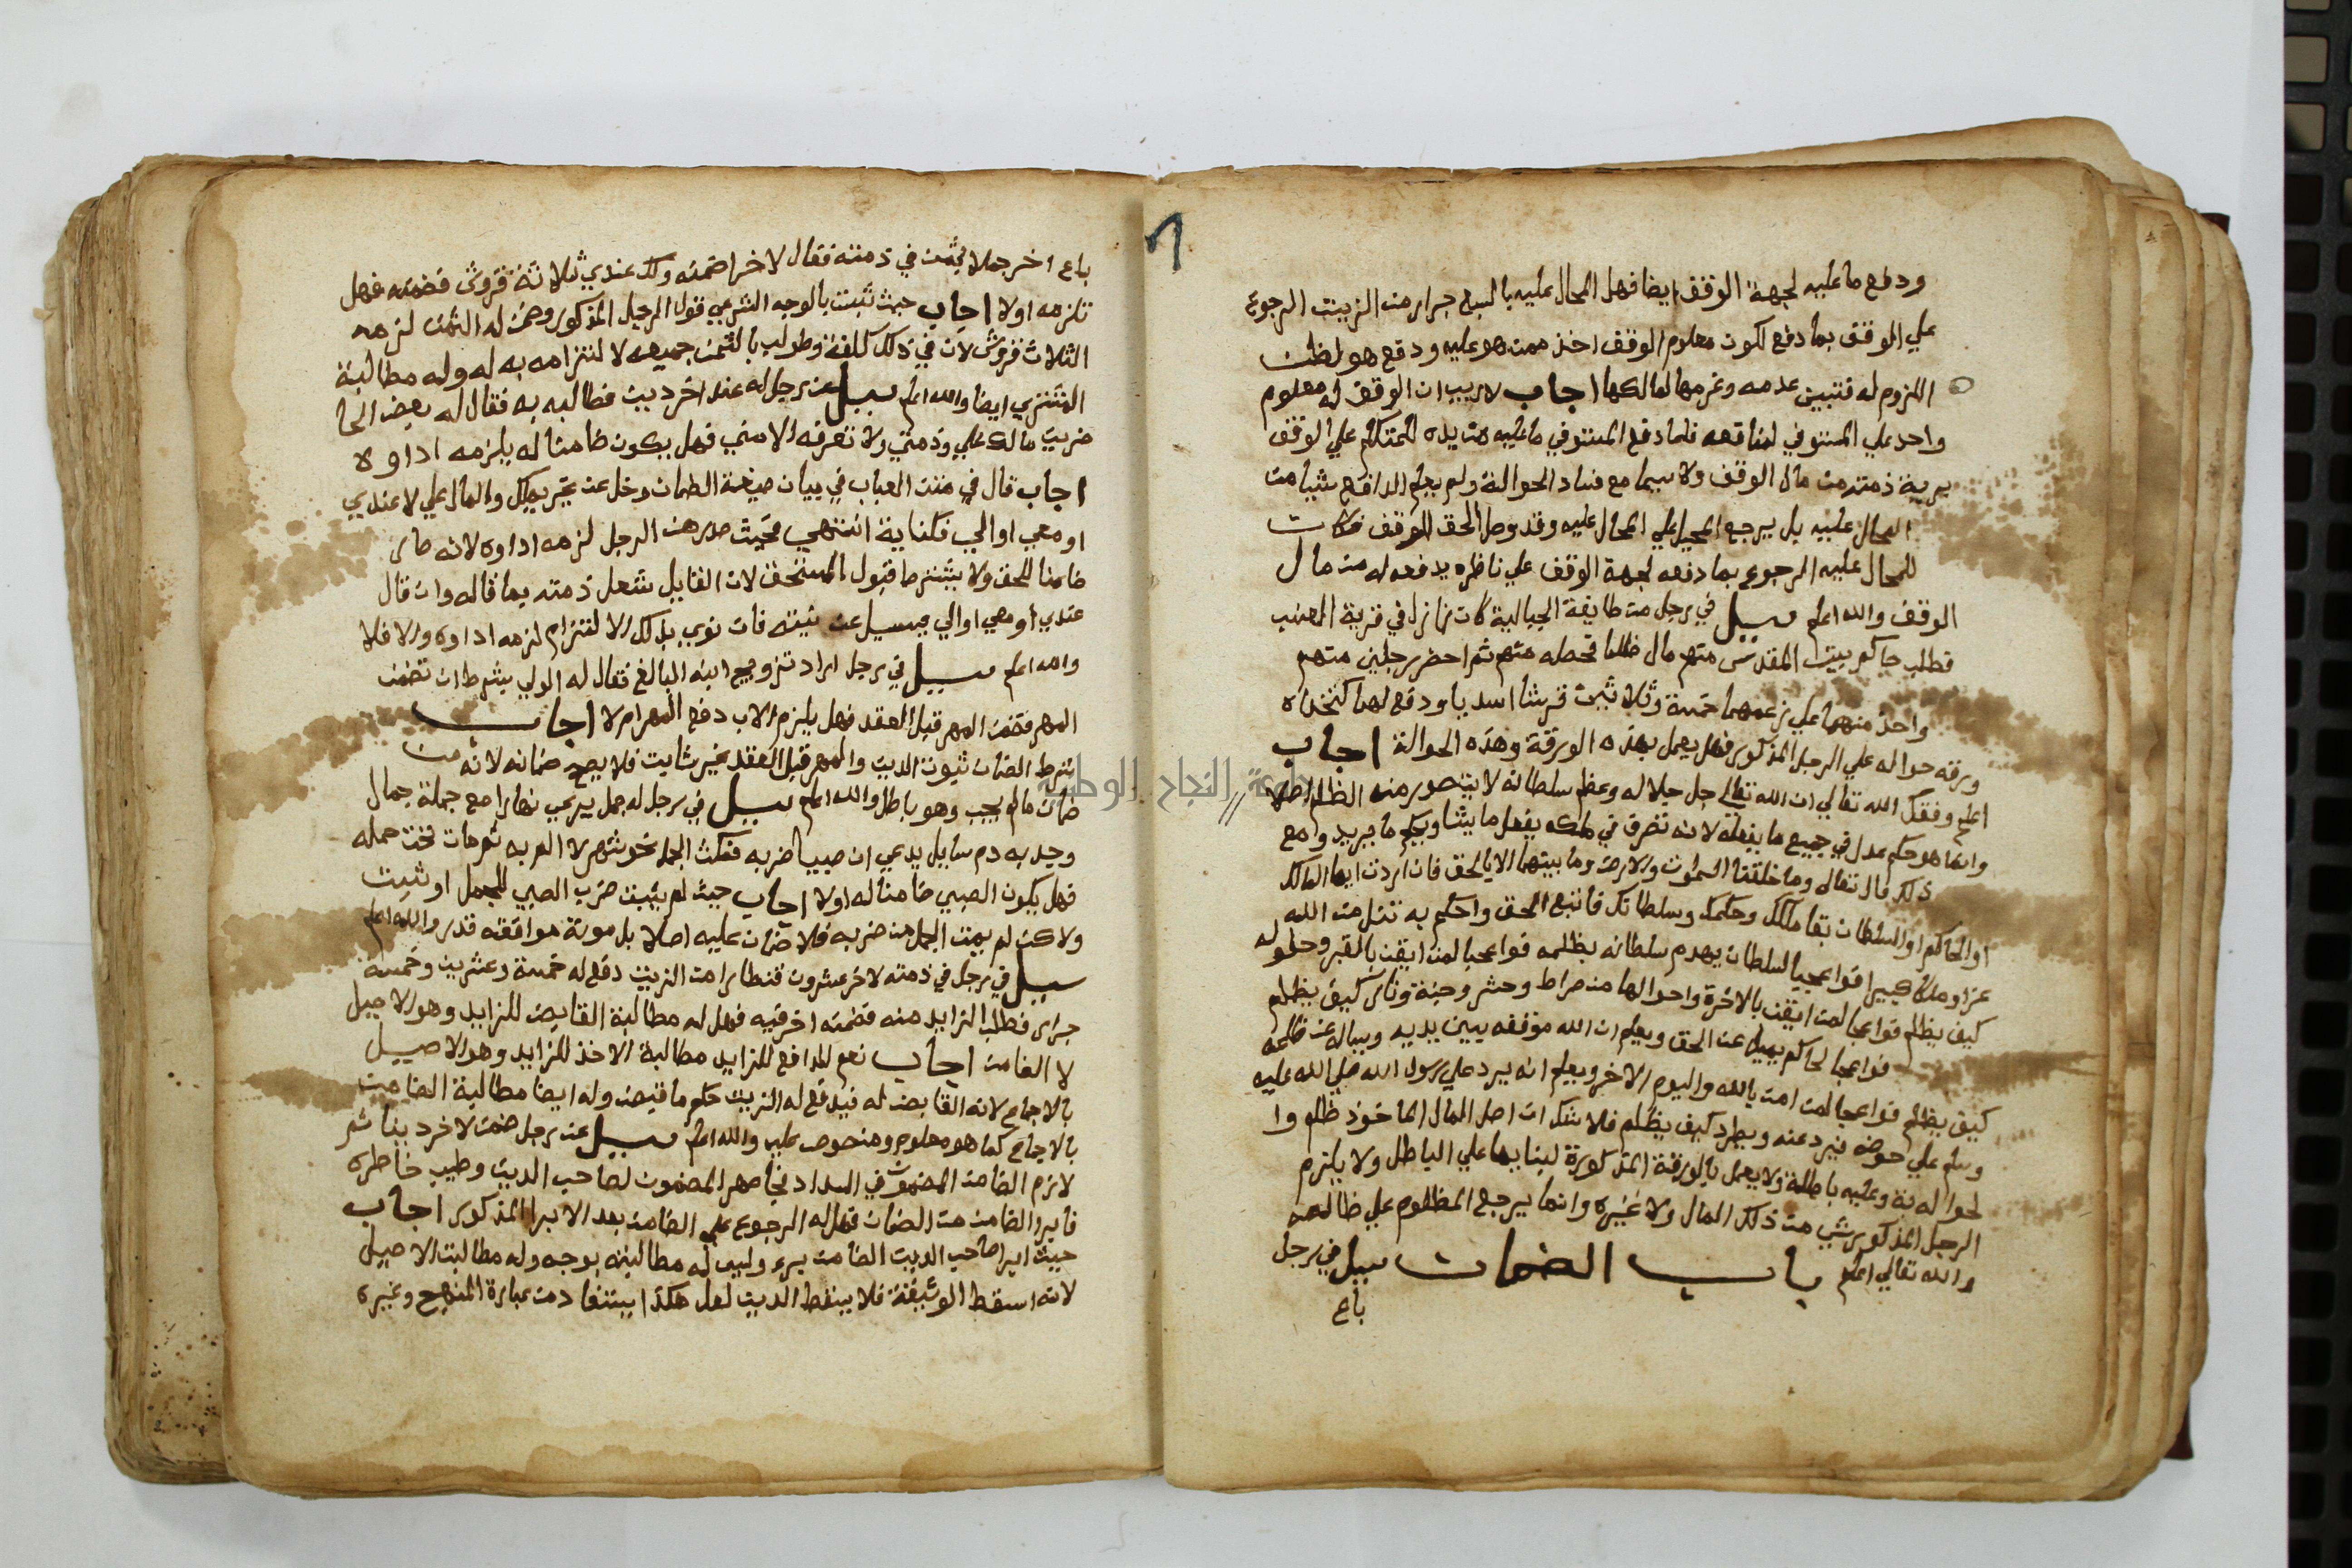 ودفع ما عليه لجهة الوقف ايضا فهل للمحال عليه بالسبع جرار من الزيت الرجوع
علي الوقف بما دفع لكون معلوم الوقف اخذ ممن هو عليه ودفع هو لظن
اللزوم له فتبين عدمه وغرمها لمالكها اجاب لا ريب ان الوقف له معلوم
واحد علي المستوفي لمنافعه فلما دفع المستوفي ما عليه من يده للمتكلم علي الوقف
برية ذمته من مال الوقف ولا سيما مع فساد الحوالة ولم يعلم الدافع شيا من
المحال عليه بل يرجع المحيل علي المحال عليه وقد وصل الحق للوقف فكان
للمحال عليه الرجوع بما دفعه لجهة الوقف علي ناظره يدفعه له من مال
الوقف والله اعلم سيل في رجل من طايفة الجبالية كان نازل في قرية العنب
فطلب حاكم بيت المقدس منهم مال ظلما فحصله منهم ثم احضر رجلين منهم
واخذ منهما علي زعمهما خمسة وثلاثين قرشا اسديا ودفع لهما كتخداه
ورقه حواله علي الرجل المذكور فهل يعمل بهذه الورقة وهذه الحوالة اجاب
اعلم وفقك الله تعالي ان الله تعالي جل جلاله وعظم سلطانه لا يتصور منه الظلم اصلا
وانما هو حكم عدل في جميع ما يفعله لانه تصرف في ملكه يفعل ما يشا ويحكم ما يريد ومع
ذلك قال تعالي وما خلقنا السموات والارض وما بينهما الا بالحق فان اردت ايها المالك
او الحاكم او السلطان بقا ملكك وحكمك وسلطانك فاتبع الحق واحكم به تنل من الله
عزا وملكا كبيرا فواعجبا لسلطان يهدم سلطانه بظلمه فواعجبا لمن ايقن بالقبر وحلوله
كيف يظلم فواعجبا لمن ايقن بالاخرة واحوالها من صراط وحشر وجنة ونار كيف يظلم
فواعجبا لحاكم يميل عن الحق ويعلم ان الله موقفه بين يديه ويساله عن ظلمه
كيف يظلم فواعجبا لمن امن بالله واليوم الاخر ويعلم انه يرد علي رسول الله صلي الله عليه
وسلم علي حوضه فيرد عنه ويطرد كيف يظلم فلا شك ان اصل المال الماخوذ ظلم وا
لحواله به وعليه باطلة ولا يعمل بالورقة المذكورة لبنايها علي الباطل ولا يلزم
الرجل المذكور شي من ذلك المال ولا غيره وانما يرجع المظلوم علي ظالمه
والله تعالي اعلم باب الضمان سيل في رجل
باع
باع اخر جملا بثمن في ذمته فقال لاخر اضمنه ولك عندي ثلاثة قروش فضمنه فهل
تلزمه اولا اجاب حيث ثبت بالوجه الشرعي قول الرجل المذكور وضمن له الثمن لزمه
الثلاث قروش لان في ذلك كلفة وطولب بالثمن جميعه لالتزامه به له وله مطالبة
المشتري ايضا والله اعلم سيل عن رجل له عند اخر دين فطالبه به فقال له بعض الحا
ضرين مالك علي وذمتي ولا تعرفه الا مني فهل يكون ضامنا له يلزمه اداوه
اجاب قال في متن العباب في بيان صيغة الضمان وخل عن غريمك والمال علي لا عندي
او معي او الي فكناية انتهي فحيث صدر من الرجل لزمه اداوه لانه صار
ضامنا للحق ولا يشترط قبول المستحق لان القايل شغل ذمته بما قاله وان قال
عندي او معي او الي فيسيل عن نيته فان نوي بذلك الالتزام لزمه اداوه والا فلا
والله اعلم سيل في رجل اراد تزويج ابنه البالغ فقال له الولي بشرط ان تضمن
المهر فضمن المهر قبل العقد فهل يلزم الاب دفع المهر ام لا اجاب
شرط الضمان ثبوت الدين والمهر قبل العقد غير ثابت فلا يصح ضمانه لانه من
ضمان مالم يجب وهو باطل والله اعلم سيل في رجل له جمل يرعي نهارا مع جملة جمال
وجد به دم سايل يدعي ان صبيا ضربه فمكث الجمل نحو شهر لا الم به ثم مات تحت حمله
فهل يكون الصبي ضامنا له اولا اجاب حيث لم يثبت ضرب الصبي للجمل او ثبت
ولاكن لم يمت الجمل من ضربه فلا ضمان عليه اصلا بل موته موافقه قدر والله اعلم
سيل في رجل في ذمته لاخر عشرون قنطارا من الزيت دفع له خمسة وعشرين وخمسة
جرار فطلب الزايد منه فضمنه اخر فيه فهل له مطالبة القابض للزايد وهو الاصيل
لا الضامن اجاب نعم للدافع للزايد مطالبة الاخذ للزايد وهو الاصيل
بالاجماع لانه القابض له فيدفع له الزيت حكم ما قبض وله ايضا مطالبة الضامن
بالاجماع كما هو معلوم ومنصوص عليه والله اعلم سيل عن رجل ضمن لاخر دينا ثم
لازم الضامن المضمون في السداد فخاصهر المضمون لصاحب الدين وطيب خاطره
فابرا الضامن من الضمان فهل له الرجوع علي الضامن بعد الابرا المذكور اجاب
حيث ابرا صاحب الدين الضامن برء وليس له مطالبته بوجه وله مطالبت الاصيل
لانه اسقط الوثيقة فلا يسقط الدين لعل هكذا يستفا د من عبارة المنهج وغيره
جامعة النجاح الوطنية